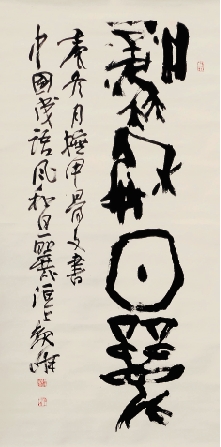 風和日麗
冬月撫甲骨文書
中國成語風和日麗洹上